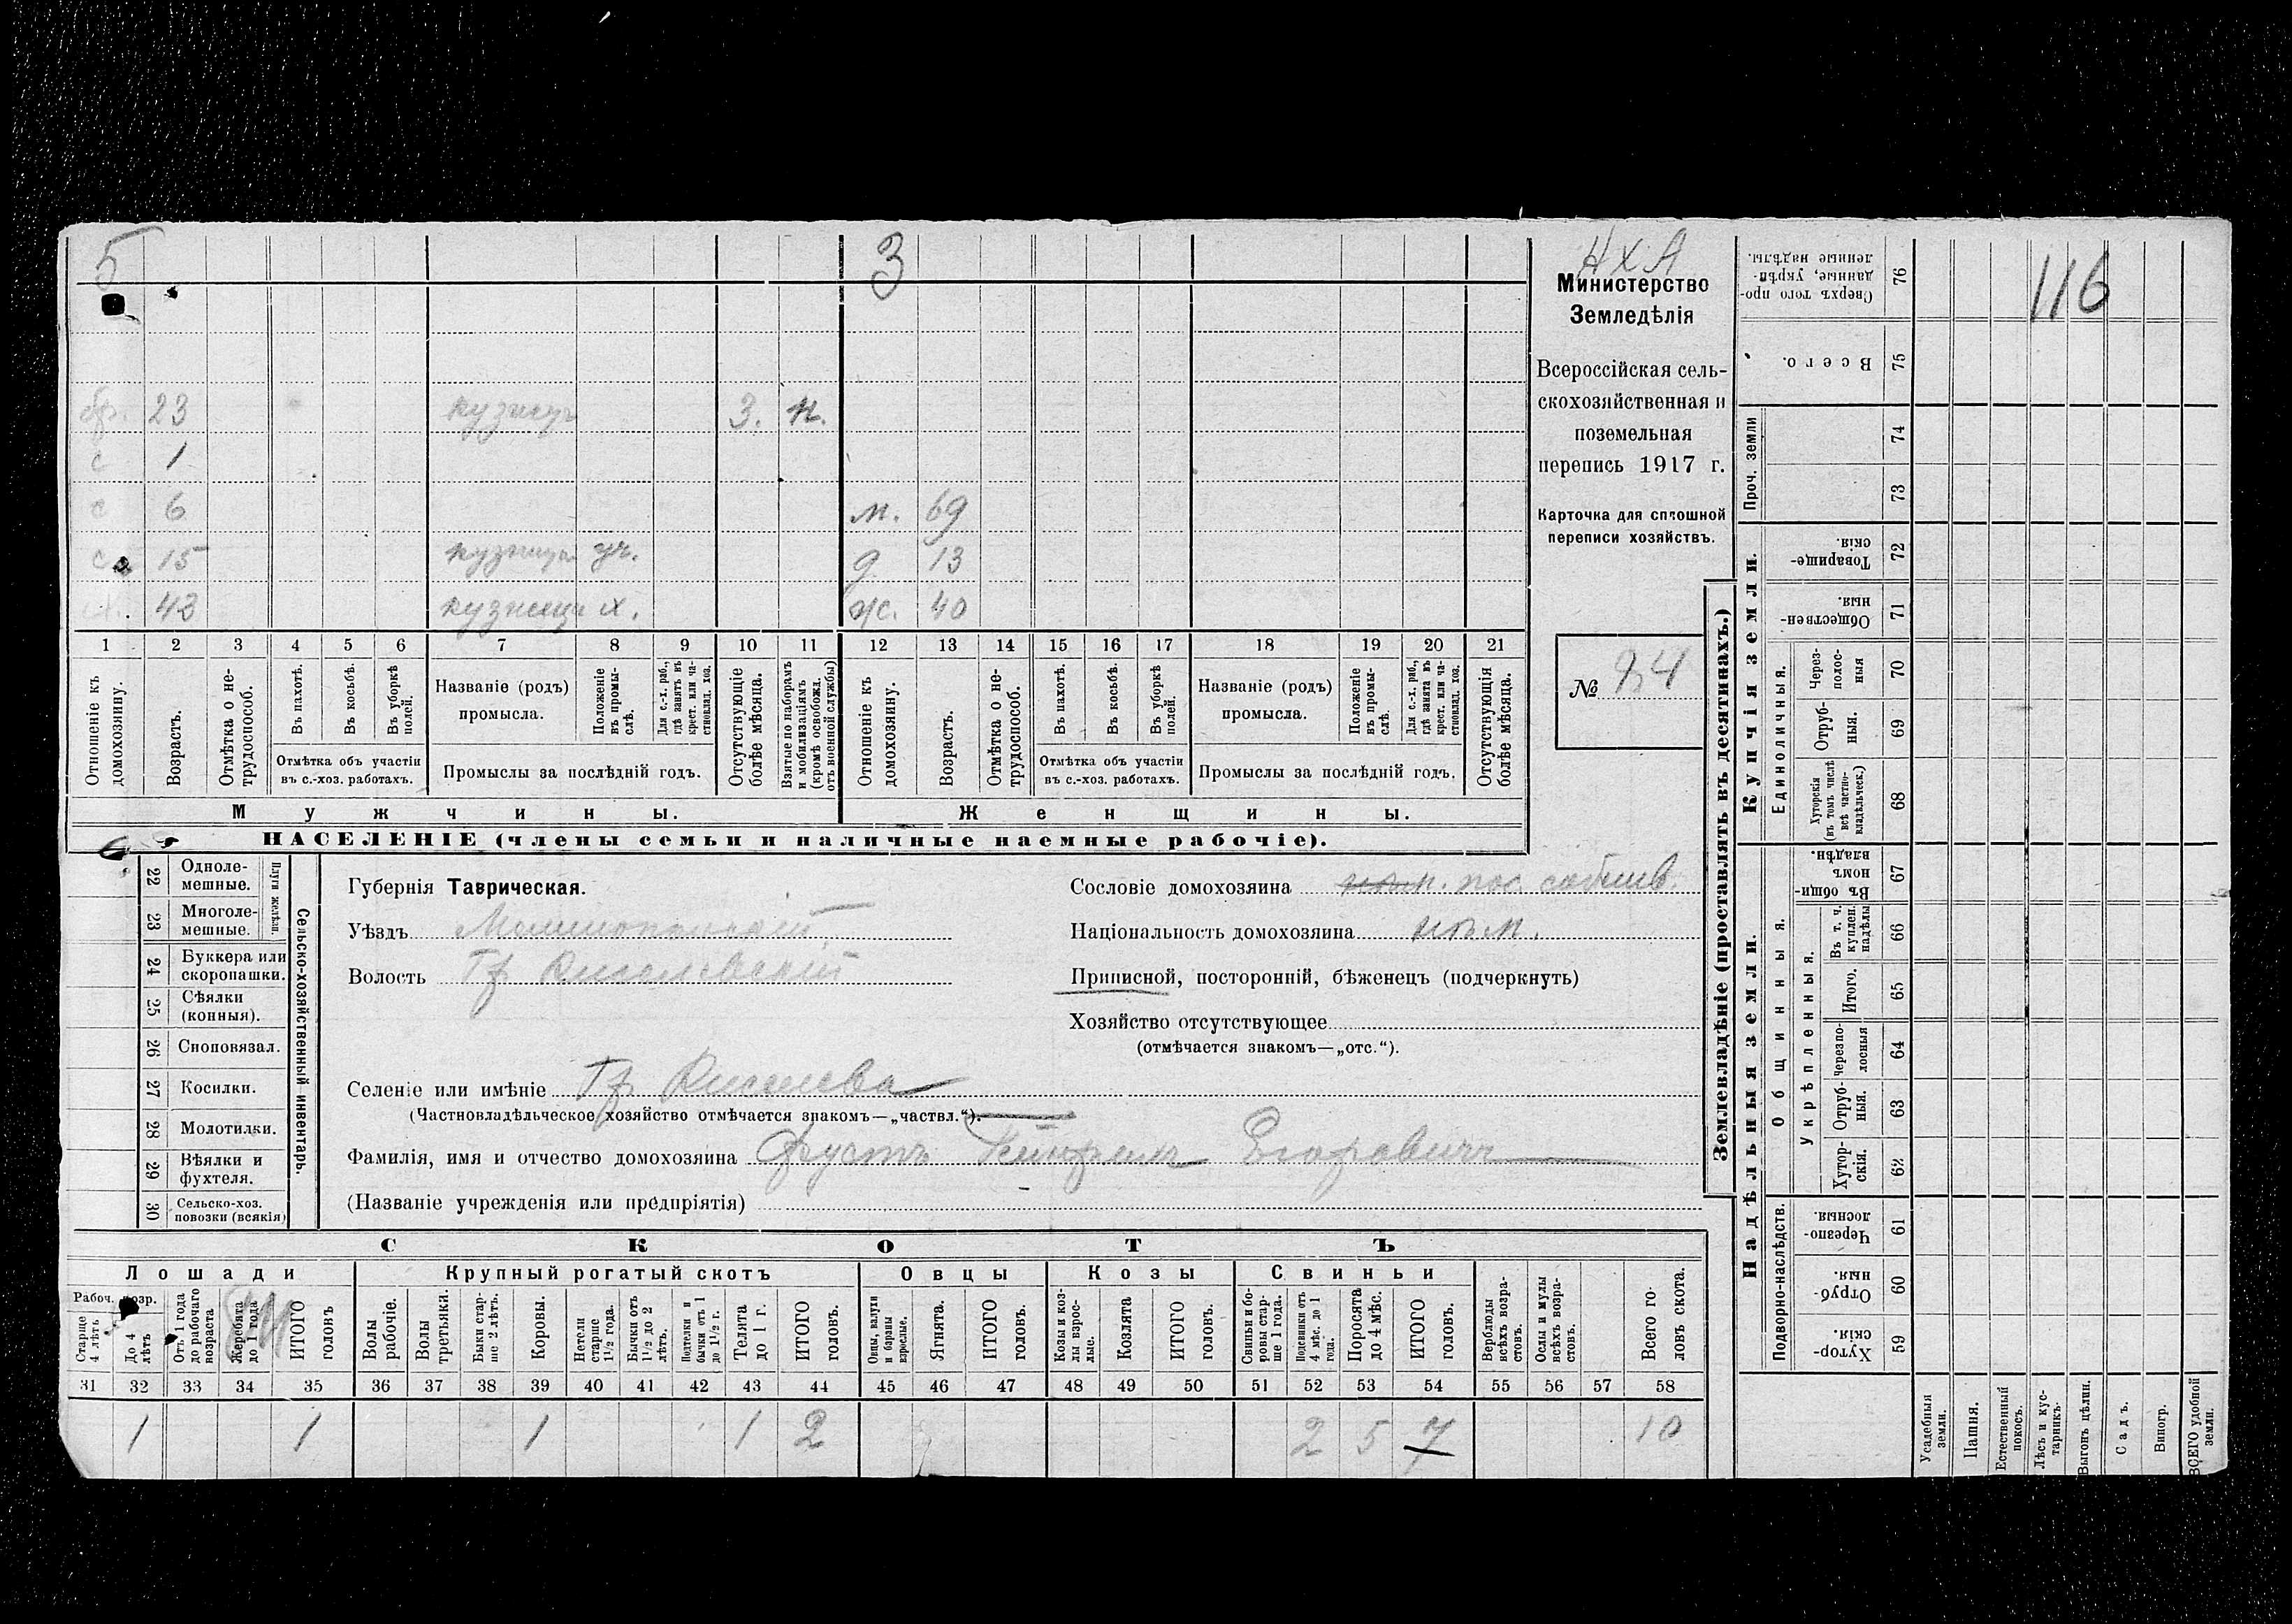 5 3
бр. 23 кузнецъ 3. н.
с 1
с 6 м. 69
с 15 кузнецъ уч. д. 13
х. 43 кузнецъ х. ж. 40
1 2 3 4 5 6 7 8 9 10 11 12 13 14 15 16 17 18 19 20 21
Отношеніе къ домохозяину.
Возрастъ.
Отмѣтка о не-трудоспособ.
Въ пахотѣ.
Въ косьбѣ.
Въ уборкѣ полей.
Отмѣтка объ участіи
въ с.-хоз. работахъ.
Названіе (родъ)
промысла.
Положеніе въ промы-слѣ.
Для с.-х. раб., гдѣ занятъ въ крест. или ча-стновлад. хоз.
Промыслы за послѣдній годъ.
Отсутствующіе болѣе мѣсяца.
Взятые по наборамъ и мобилизаціямъ (кромѣ освобожд. отъ военной службы)
Отношеніе къ домохозяину.
Возрастъ.
Отмѣтка о не-трудоспособ.
Въ пахотѣ.
Въ косьбѣ.
Въ уборкѣ полей.
Отмѣтка объ участіи
въ с.-хоз. работахъ.
Названіе (родъ)
промысла.
Положеніе въ промы-слѣ.
Для с.-х. раб., гдѣ занята въ крест. или ча-стновлад. хоз.
Промыслы за послѣдній годъ.
Отсутствующія болѣе мѣсяца.
Мужчины. Женщины.
НАСЕЛЕНІЕ (члены семьи и наличные наемные рабочіе).
НХА
Министерство
Земледѣлія
Всероссійская сель-
скохозяйственная и
поземельная
перепись 1917 г.
Карточка для сплошной
переписи хозяйствъ.
№ 94
Сельско-хозяйственный инвентарь.
Плуги желѣзн.
22 Одноле-мешные.
23 Многоле-мешные.
24 Буккера или скоропашки.
25 Сѣялки (конныя).
26 Сноповязал.
27 Косилки.
28 Молотилки.
29 Вѣялки и фухтеля.
30 Сельско-хоз. повозки (всякія)
Губернія Таврическая.
Уѣздъ Мелитопольскій
Волость Гр. Киселевскій
Селеніе или имѣніе Гр. Киселева
(Частновладѣльческое хозяйство отмѣчается знакомъ—„частвл.“).
Фамилія, имя и отчество домохозяина Фустъ Генрихъ Егоровичъ
(Названіе учрежденія или предпріятія)
Сословіе домохозяина пос. собств.
Національность домохозяина нѣм.
Приписной, посторонній, бѣженецъ (подчеркнуть)
Хозяйство отсутствующее
(отмѣчается знакомъ—„отс.“).
СКОТЪ
Лошади Крупный рогатый скотъ Овцы Козы Свиньи
Рабоч. возр.
Старше 4 лѣтъ
До 4 лѣтъ
Отъ 1 года до рабочаго возраста
Жеребята до 1 года
ИТОГО головъ
Волы рабочіе.
Волы третьяки.
Быки стар-ше 2 лѣтъ.
Коровы.
Нетели старше 1½ года.
Бычки отъ 1½ до 2 лѣтъ.
Подтелки и бычки отъ 1 до 1½ г.
Телята до 1 г.
ИТОГО головъ.
Овцы, валухи и бараны взрослые.
Ягнята.
ИТОГО головъ.
Козы и коз-лы взрос-лые.
Козлята
ИТОГО головъ.
Свиньи и бо-ровы стар-ше 1 года.
Подсвинки отъ 4 мѣс. до 1 года.
Поросята до 4 мѣс.
ИТОГО головъ.
Верблюды всѣхъ возра-стовъ.
Ослы и мулы всѣхъ возра-стовъ.
Всего го-ловъ скота.
31 32 33 34 35 36 37 38 39 40 41 42 43 44 45 46 47 48 49 50 51 52 53 54 55 56 57 58
1 1 1 1 2 2 5 7 10
Землевладѣніе (проставлять въ десятинахъ.)
Купчія земли.
Надѣльныя земли.
116
Сверхъ того про-данные, укрѣп-ленные надѣлы. 76
Всего. 75
Проч. земли 74
73
Товарище-скія. 72
Обществен-ныя. 71
Единоличныя.
Через-полос-ныя 70
Отруб-ныя. 69
Хуторскія (въ томъ числѣ всѣ частно-владѣльческ.) 68
Общинныя.
Въ общин-номъ владѣн. 67
Укрѣпленныя.
Въ т. ч. куплен. надѣлы 66
Итого. 65
черезпо-лосныя 64
Отруб-ныя. 63
Хутор-скія. 62
Подворно-наслѣдств.
Черезпо-лосныя. 61
Отруб-ныя. 60
Хутор-скія. 59
Усадебныя земли.
Пашня.
Естественный покосъ.
Лѣсъ и кус-тарникъ.
Выгонъ цѣлин.
Садъ.
Виногр.
ВСЕГО удобной земли.